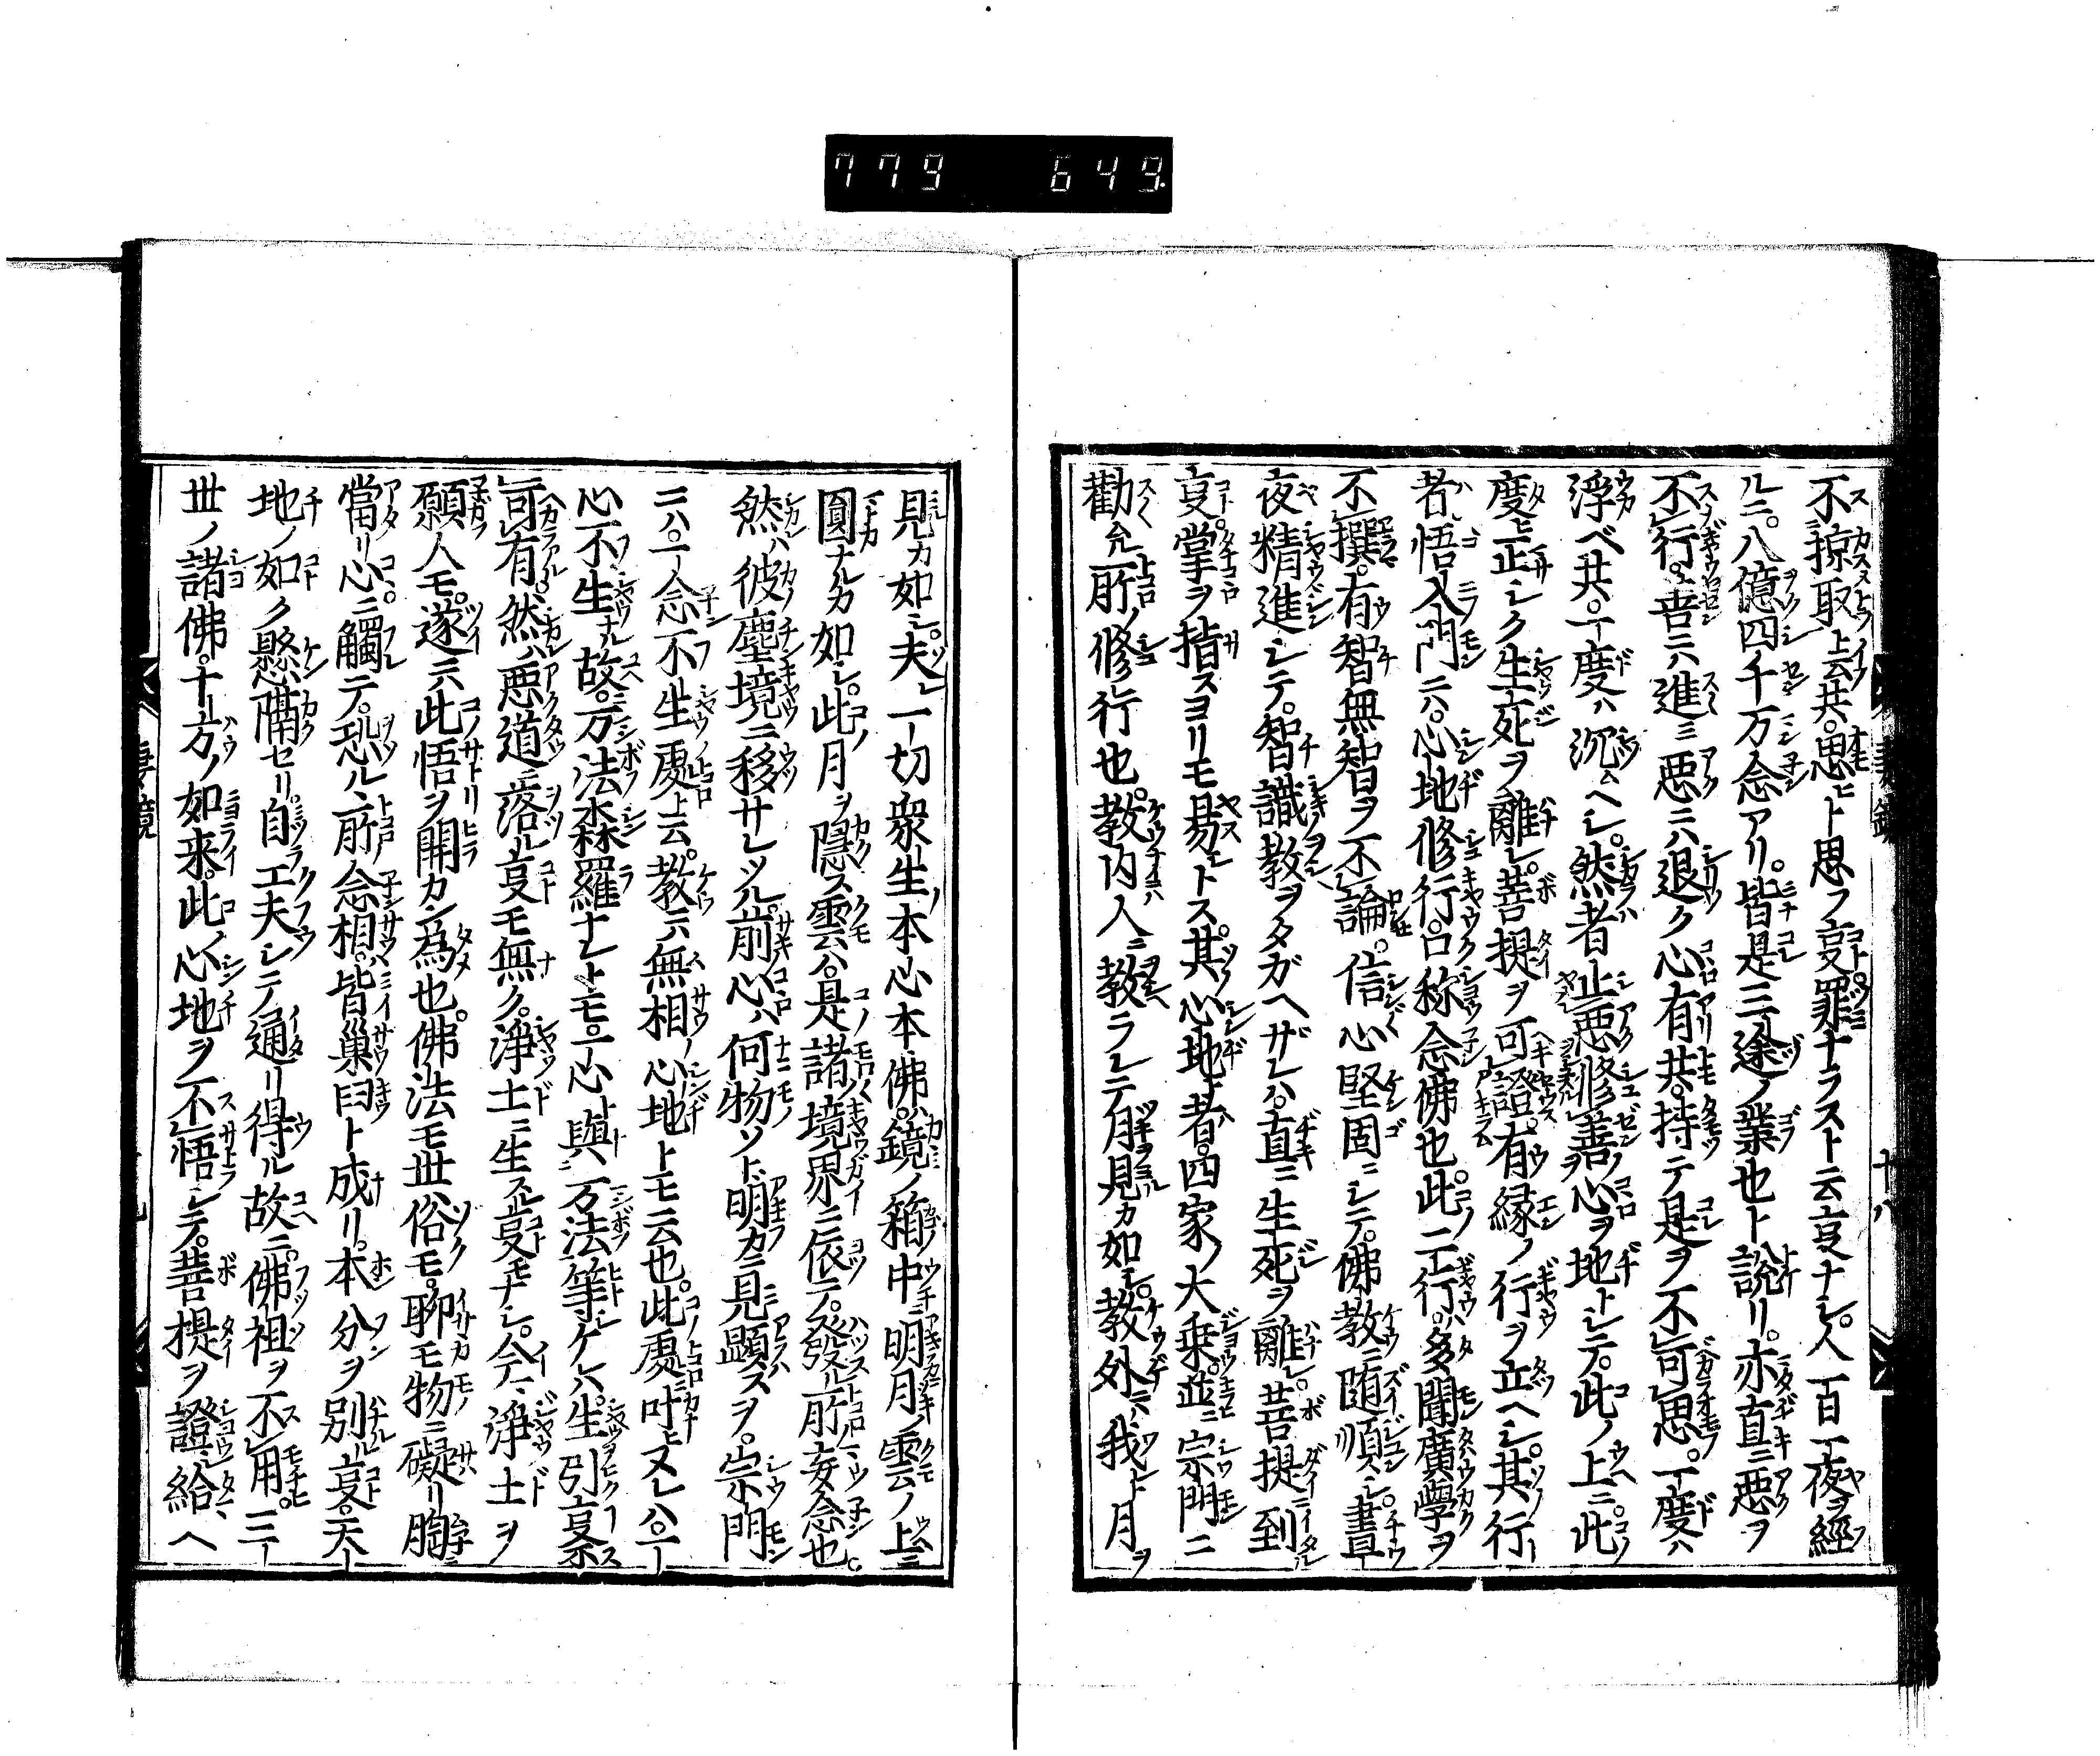 779 649
不掠取ト云共。思ヒト思フ事罪ナラスト云事ナシ。人一百一夜ヲ經
ルニ。八億四千万念アリ。皆是三途ノ業也ト說リ。亦直ニ悪ヲ
不行。善ニハ進ミ悪ニハ退ク心有共。持テ是ヲ不可思。一度ハ
浮ベ共。一度ハ沉ムヘシ。然者止悪修善ノ心ヲ地トシテ。此ノ上ニ。此
度ヒ正シク生死ヲ離レ。菩提ヲ可證。有縁ノ行ヲ立ヘシ。其行
者悟入門ニハ。心地修行。口称念佛也。此二行ハ。多聞廣學ヲ
不撰。有智無智ヲ不論。信心堅固ニシテ。佛教ニ随順シ。晝
夜精進シテ。智識教ヲタガヘザレハ。直ニ生死ヲ離レ。菩提到
事。掌ヲ指スヨリモ易シトス。其心地ト者。四家ノ大乗。並ニ宗門ニ
勸ル所ノ修行也。教内ハ人ニ教ラレテ月ヲ見カ如シ。教外ニハ我ト月ヲ
見カ如シ。夫レ一切衆生ノ本心本佛ハ。鏡ノ箱中ニ明月ノ雲ノ上ニ
圓ナルカ如シ。此月ヲ隠ス雲ハ。是諸境界ニ依テ。發ル所妄念也。
然ハ彼塵境ニ移サレツル。前心ハ何物ソト。明カニ見顯スヲ。宗門
ニハ。一念不生處ト云。教ニハ無相ノ心地トモ云也。此處叶ヒヌレハ。一
心不生ナル故ニ。万法森羅ナレトモ。一心與万法等ケレハ。生ヲ引事
不可有。然ハ悪道ニ落ル事モ無ク。淨土ニ生スル事モナシ。今ハ淨土ヲ
願人モ。遂ニハ此悟ヲ開カン為也。佛法モ世俗モ。聊モ物ニ礙リ胸ニ
當リ。心ニ觸テ。恐ル所ノ念相。皆巢臼ト成リ。本分ヲ別ル事。天
地ノ如ク懸隔セリ。自工夫シテ通リ得ル故ニ。佛祖ヲ不用。三
世ノ諸佛。十方ノ如来。此心地ヲ不悟シテ。菩提ヲ證シ給ヘ